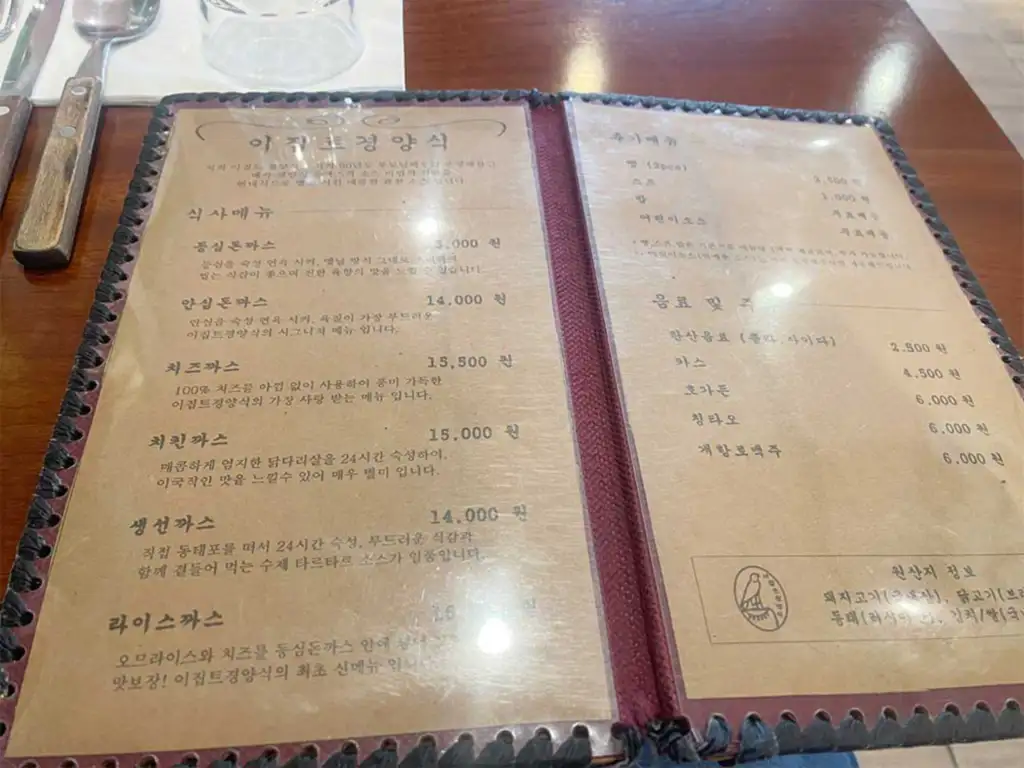 이집트경양식
식사메뉴
등심돈까스 3,000 원
등심을 숙성 연육 시켜, 옛날 방식 그대로
있는 식감이 좋으며 진한 육향의 맛을 느낄 수 있습니다
안심돈까스 14,000 원
안심을 숙성 연육 시켜, 육질이 가장 부드러운
이집트경양식의 시그니처 메뉴 입니다.
치즈까스 15,500 원
100% 치즈를 아낌 없이 사용하여 풍미 가득한
이집트경양식의 가장 사랑 받는 메뉴 입니다.
치킨까스 15,000 원
매콤하게 염지한 닭다리살을 24시간 숙성하여,
이국적인 맛을 느낄수 있어 매우 별미 입니다.
생선까스 14,000 원
직접 동태포를 떠서 24시간 숙성, 부드러운 식감과
함께 곁들어 먹는 수제 타르타르 소스가 일품입니다.
라이스까스
오므라이스와 치즈를 등심돈까스 안에
맛보장! 이집트경양식의 최초 신메뉴
추가메뉴
빵 (2pcs)
스프 2,500 원
밥 1,000 원
어린이소스 무료제공
무료제공
음료 및 주
탄산음료 (콜라, 사이다) 2,500 원
카스 4,500 원
호가든 6,000 원
칭타오 6,000 원
개항로맥주 6,000 원
원산지 정보
돼지고기 닭고기(브라
동태(러시아 김치/쌀(국